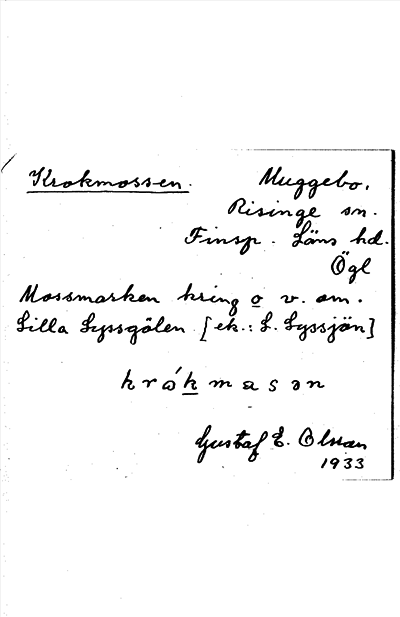 Krokmossen. Muggebo,
Risinge sn.
Finsp. Läns hd.
Ögl
Mossmarken kring o v. om.
Lilla Lyssgölen [ek.: L. Lyssjön]
Gustaf E. Olsson
1933